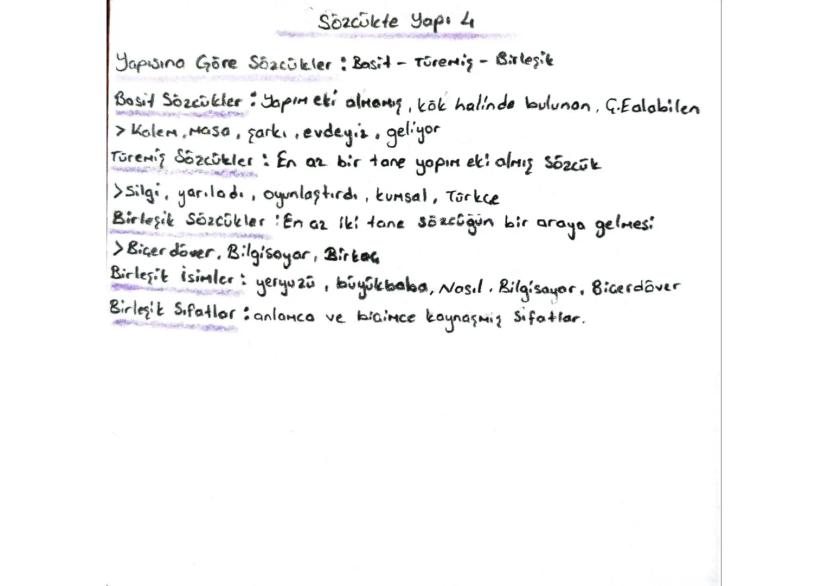 Sözcükte Yapı 4
Yapısına Göre Sözcükler : Basit - Türemiş - Birleşik
Basit Sözcükler : Yapım eki almamış, kök halinde bulunan, Ç.E alabilen
> Kalem, masa, şarkı, evdeyiz, geliyor
Türemiş Sözcükler : En az bir tane yapım eki almış sözcük
> Silgi, yarıladı, oyunlaştırdı, kumsal, Türkçe
Birleşik Sözcükler : En az iki tane sözcüğün bir araya gelmesi
> Biçerdöver, Bilgisayar, Birkaç
Birleşik İsimler : yeryüzü, büyükbaba, Nasıl, Bilgisayar, Biçerdöver
Birleşik Sıfatlar : anlamca ve biçimce kaynaşmış sıfatlar.